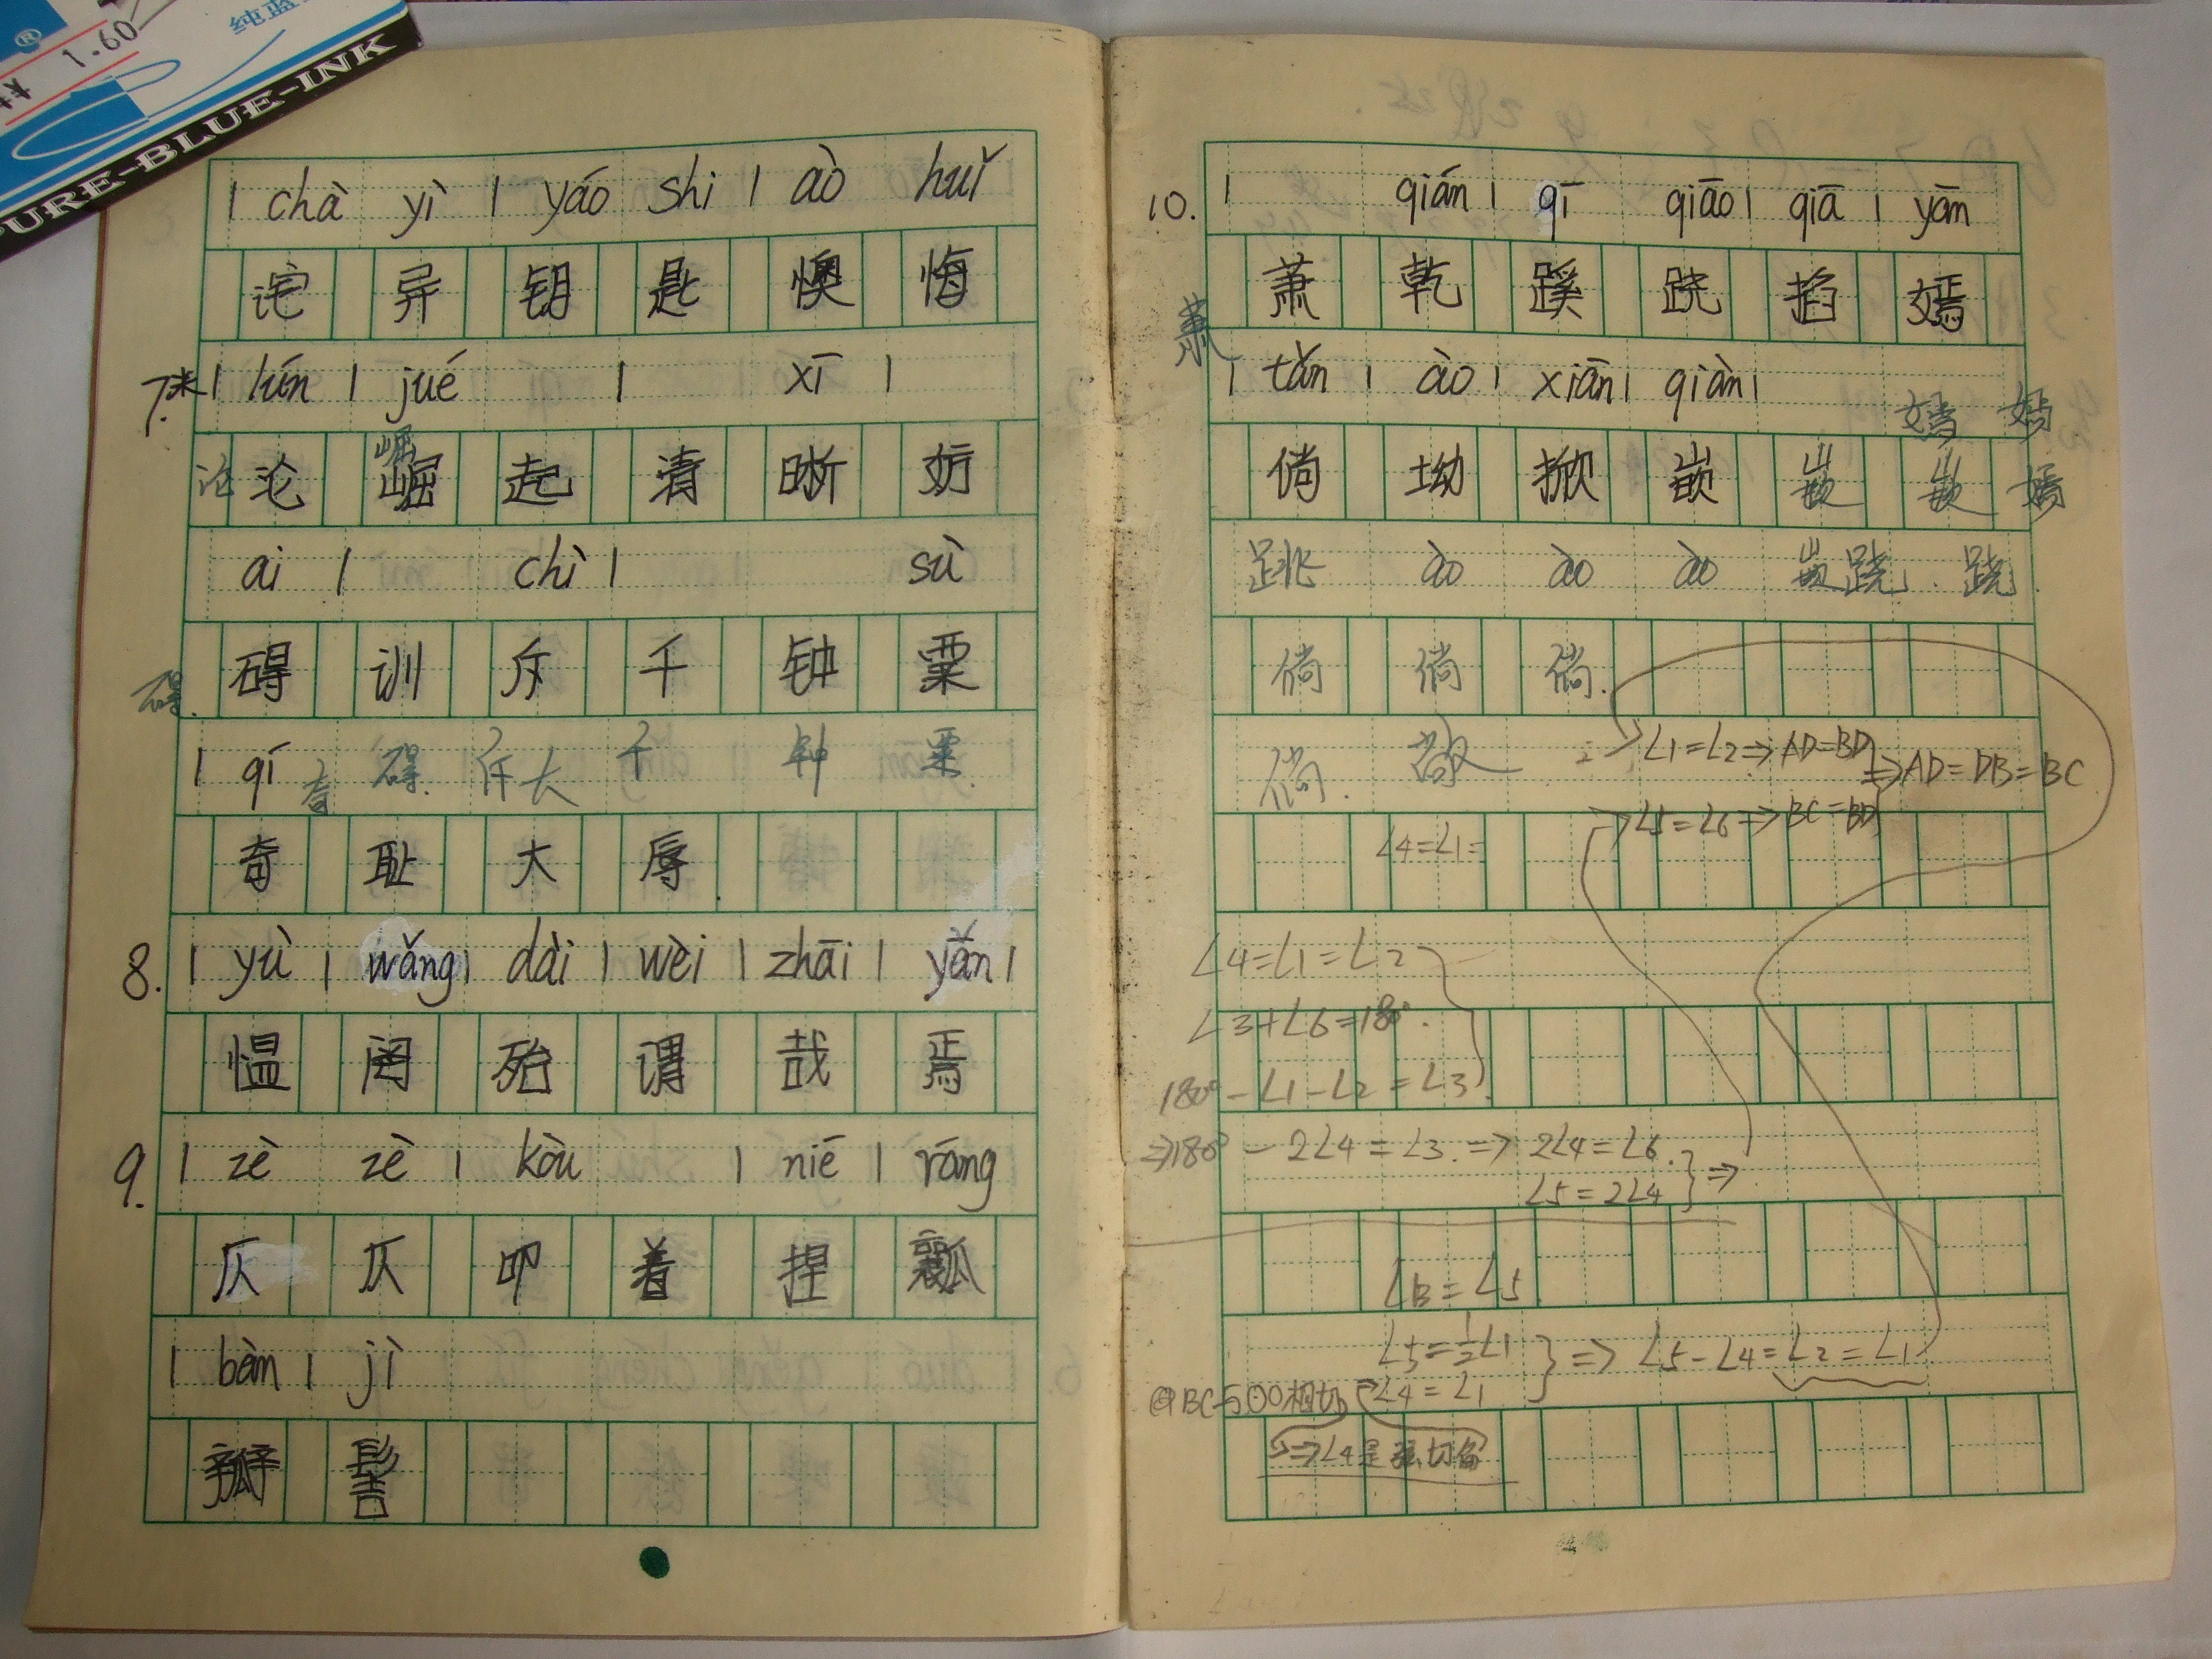 ® 纯蓝
1.60
PURE-BLUE-INK
chà yì yáo shi ào huǐ
诧 异 钥 匙 懊 悔
7.* lún jué xī
论 沦 崛 起 清 晰 妨
崛
ai chì sù
碍 训 斥 千 钟 粟
碍
qí 奇 碍. 斥大 千 钟 粟.
奇 耻 大 辱
8. yù wǎng dài wèi zhāi yān
愠 罔 殆 谓 哉 焉
9. zè zè kòu niē ráng
仄 仄 叩 着 捏 瓤
bàn jì
瓣 髻
10. qián qī qiāo qiā yān
萧 乾 蹊 跷 掐 嫣
萧
tǎn ào xiān qiàn
嫣 嫣
倘 坳 掀 嵌 嵌 嵌 嫣
跳 ào ào ào 嵌跷 跷
倘 倘 倘.
倘.
∠1=∠2⇒AD=BD
⇒AD=DB=BC
∠5=∠6⇒BC=BD
∠4=∠1=
∠4=∠1=∠2
∠3+∠6=180°.
180°-∠1-∠2=∠3
⇒180°-2∠4=∠3.⇒2∠4=∠6.
∠5=2∠4}⇒
∠B=∠5
∠5=½∠1
}⇒∠5-∠4=∠2=∠1
BC与⊙O相切 ∠4=∠1
⇒∠4是弦切角